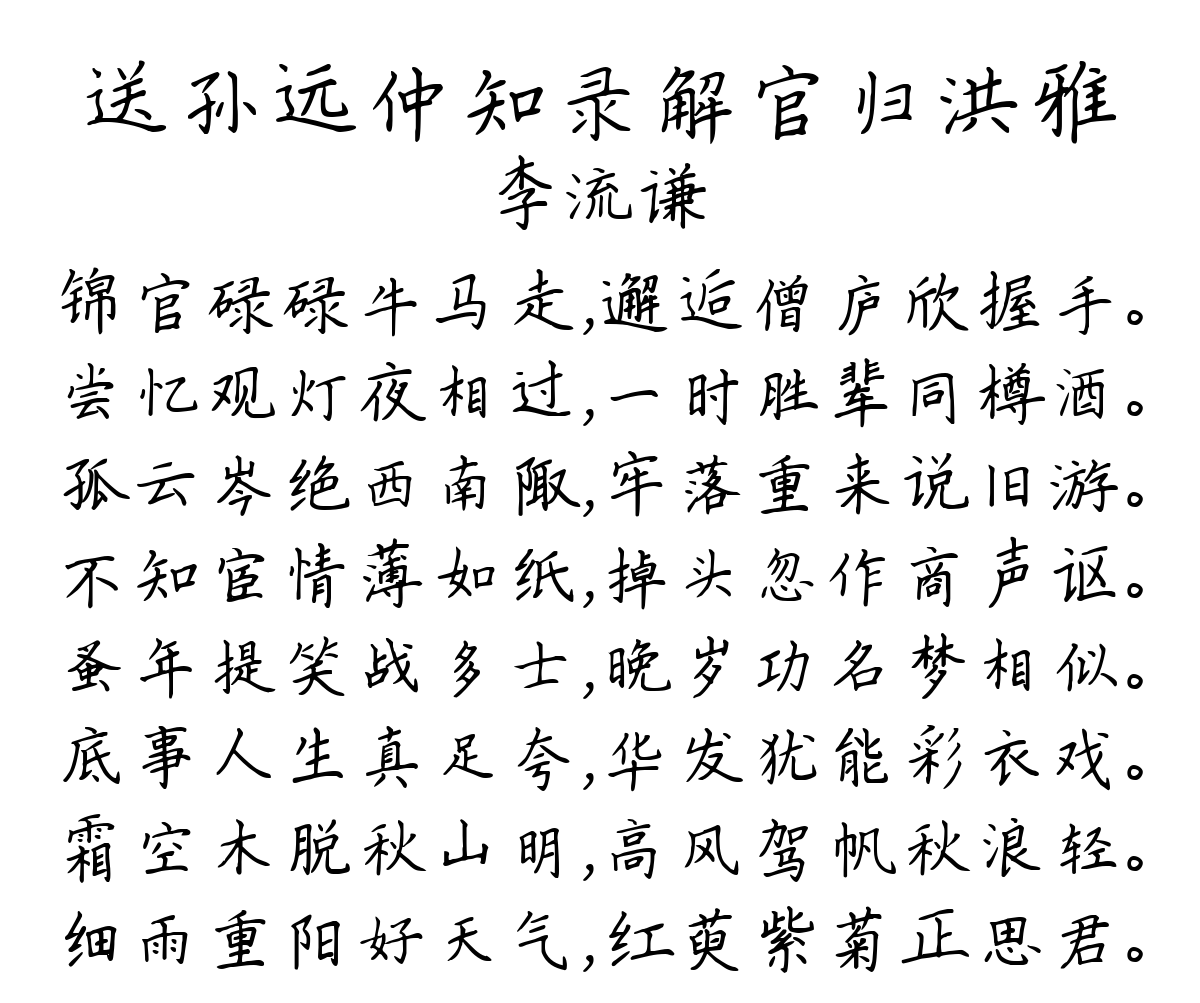 送孙远仲知录解官归洪雅
李流谦
锦官碌碌牛马走,邂逅僧庐欣握手。
尝忆观灯夜相过,一时胜辈同樽酒。
孤云岑绝西南陬,牢落重来说旧游。
不知宦情薄如纸,掉头忽作商声讴。
蚤年提笑战多士,晚岁功名梦相似。
底事人生真足夸,华发犹能彩衣戏。
霜空木脱秋山明,高风驾帆秋浪轻。
细雨重阳好天气,红萸紫菊正思君。